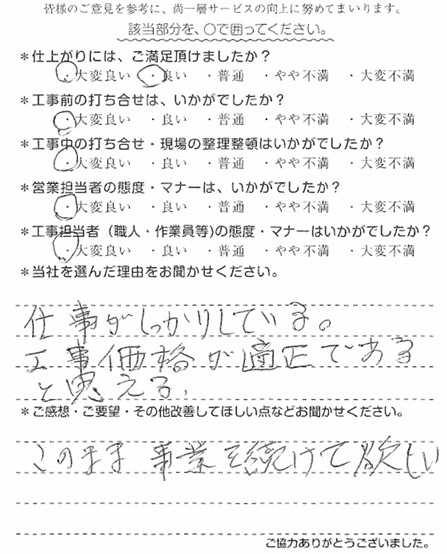 皆様のご意見を参考に、尚一層サービスの向上に努めてまいります。
該当部分を、○で囲ってください。
＊仕上がりには、ご満足頂けましたか？
・大変良い ・良い ・普通 ・やや不満 ・大変不満
＊工事前の打ち合せは、いかがでしたか？
・大変良い ・良い ・普通 ・やや不満 ・大変不満
＊工事中の打ち合せ・現場の整理整頓はいかがでしたか？
・大変良い ・良い ・普通 ・やや不満 ・大変不満
＊営業担当者の態度・マナーは、いかがでしたか？
・大変良い ・良い ・普通 ・やや不満 ・大変不満
＊工事担当者（職人・作業員等)の態度・マナーはいかがでしたか？
・大変良い ・良い ・普通 ・やや不満 ・大変不満
＊当社を選んだ理由をお聞かせください。
仕事がしっかりしている。
工事価格が適正である
と思える、
＊ご感想・ご要望・その他改善してほしい点などお聞かせください。
このまま事業を続けて欲しい
ご協力ありがとうございました。